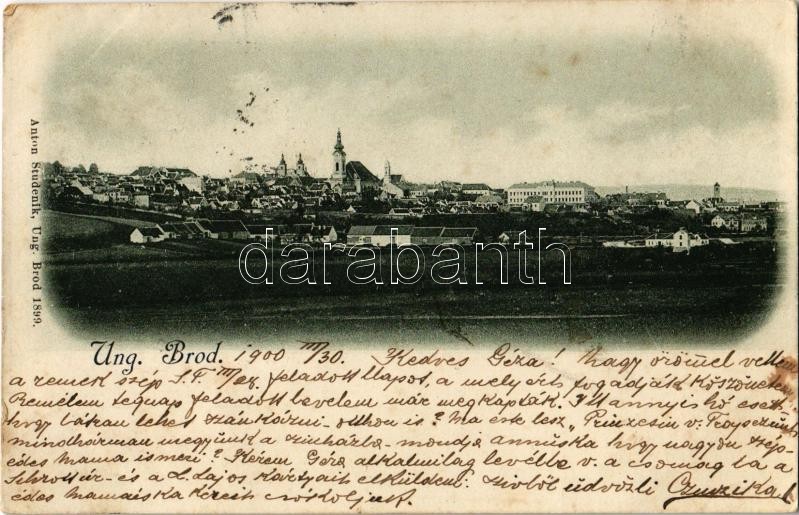 Anton Studeník, Ung. Brod 1899.
darabanth
Ung. Brod. 1900 III/30. Kedves Géza! Nagy örömmel vettem
a remek szép feladott lapot, a melyért fogadják köszönetem
Remélem tegnap feladott levelem már megkapták. Itt annyi hó esett
hogy bátran lehet szánkózni - otthon is? Ma este lesz „Prinzessin v.
mindhárman megyünk a szinházba - mondja annuska hogy nagyon szép-
édes mama ismeri? Kérem Géza alkalmilag levélbe v. a csomagba a
és a L. Lajos kártyáit elküldeni. Szivből üdvözli Czuczika
édes mamáiska kezeit csókoljuk.